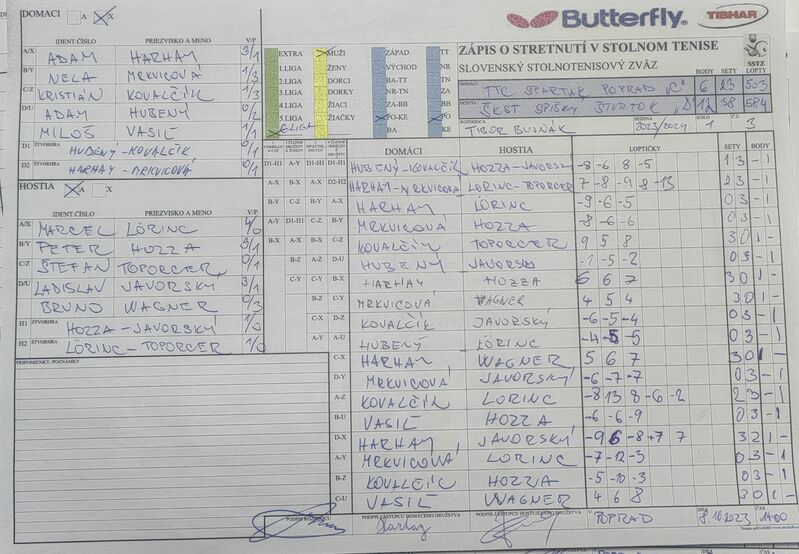 DOMÁCI A X
IDENT.ČÍSLO PRIEZVISKO A MENO V/P
A/X ADAM HARHAY 3/1
B/Y NELA MRKVICOVÁ 1/3
C/Z KRISTIÁN KOVALČÍK 1/3
D/U ADAM HUBENÝ 0/2
MILOŠ VASIĽ 1/1
D1 ŠTVORHRA HUBENÝ-KOVALČÍK 0/1
D2 ŠTVORHRA HARHAY-MRKVICOVÁ 0/1
HOSTIA A X
IDENT.ČÍSLO PRIEZVISKO A MENO V/P
A/X MARCEL LÖRINC 4/0
B/Y PETER HOZZA 3/1
C/Z ŠTEFAN TOPORCER 0/1
D/U LADISLAV JAVORSKÝ 3/1
BRUNO WAGNER 0/3
H1 ŠTVORHRA HOZZA-JAVORSKÝ 1/0
H2 ŠTVORHRA LÖRINC-TOPORCER 1/0
PRIPOMIENKY, POZNÁMKY
EXTRA MUŽI ZÁPAD TT
1.LIGA ŽENY VÝCHOD NR
2.LIGA DORCI BA-TT TN
3.LIGA DORKY NR-TN ZA
4.LIGA ŽIACI ZA-BB BB
5.LIGA ŽIAČKY PO-KE PO
6.LIGA BA KE
Butterfly TIBHAR
ZÁPIS O STRETNUTÍ V STOLNOM TENISE
SLOVENSKÝ STOLNOTENISOVÝ ZVÄZ SSTZ
BODY SETY LOPTY
DOMÁCI TTC SPARTAK POPRAD "C" 6 23 503
HOSTIA ŠKST SPIŠSKÝ ŠTVRTOK "D" 12 38 584
ROZHODCA TIBOR BUSNÁK SEZÓNA 2023/2024 KOLO 1 Č. 3
DOMÁCI HOSTIA LOPTIČKY SETY BODY
D1-H1 A-Y D1-H1 HUBENÝ-KOVALČÍK HOZZA-JAVORSKÝ -8 -6 8 -5 1 3 - 1
A-X B-X A-X D2-H2 HARHAY-MRKVICOVÁ LÖRINC-TOPORCER 7 -8 -9 8 -13 2 3 - 1
B-Y C-Z B-Y A-X HARHAY LÖRINC -9 -6 -5 0 3 - 1
A-Y D1-H1 C-Z B-Y MRKVICOVÁ HOZZA -8 -6 -6 0 3 - 1
B-X A-X B-X C-Z KOVALČÍK TOPORCER 9 5 8 3 0 1 -
B-Z A-Z D-U HUBENÝ JAVORSKÝ -1 -5 -2 0 3 - 1
C-Y C-Y B-X HARHAY HOZZA 6 6 7 3 0 1 -
B-Z C-Y MRKVICOVÁ WAGNER 4 5 4 3 0 1 -
C-X D-Z KOVALČÍK JAVORSKÝ -6 -5 -4 0 3 - 1
A-Y A-U HUBENÝ LÖRINC -4 -5 -5 0 3 - 1
C-X HARHAY WAGNER 5 6 7 3 0 1 -
D-Y MRKVICOVÁ JAVORSKÝ -6 -7 -7 0 3 - 1
A-Z KOVALČÍK LÖRINC -8 13 8 -6 -2 2 3 - 1
B-U VASIĽ HOZZA -6 -6 -9 0 3 - 1
D-X HARHAY JAVORSKÝ -9 6 -8 +7 7 3 2 1 -
A-Y MRKVICOVÁ LÖRINC -7 -12 -3 0 3 - 1
B-Z KOVALČÍK HOZZA -5 -10 -3 0 3 - 1
C-U VASIĽ WAGNER 4 6 8 3 0 1 -
PODPIS ROZHODCU PODPIS ZÁSTUPCU DOMÁCEHO DRUŽSTVA PODPIS ZÁSTUPCU HOSTUJÚCEHO DRUŽSTVA V POPRAD DŇA 8.10.2023 14:00
Harhay